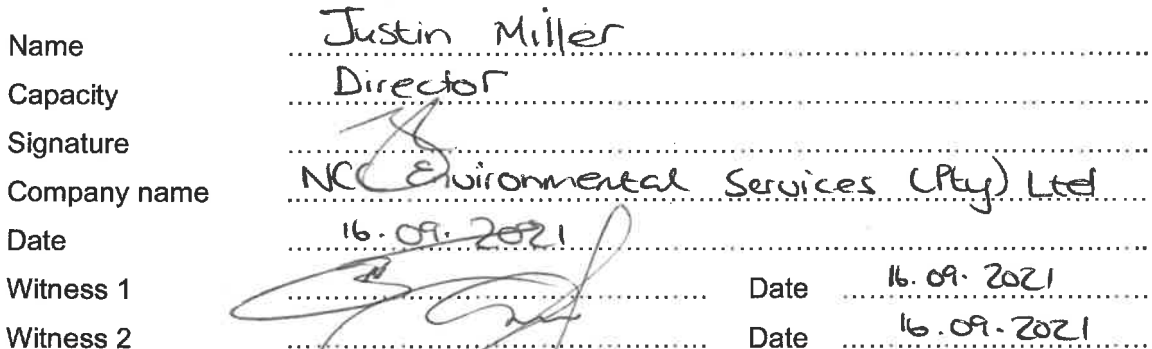 Name Justin Miller
Capacity Director
Signature
Company name NCC Environmental Services (Pty) Ltd
Date 16.09.2021
Witness 1 Date 16.09.2021
Witness 2 Date 16.09.2021